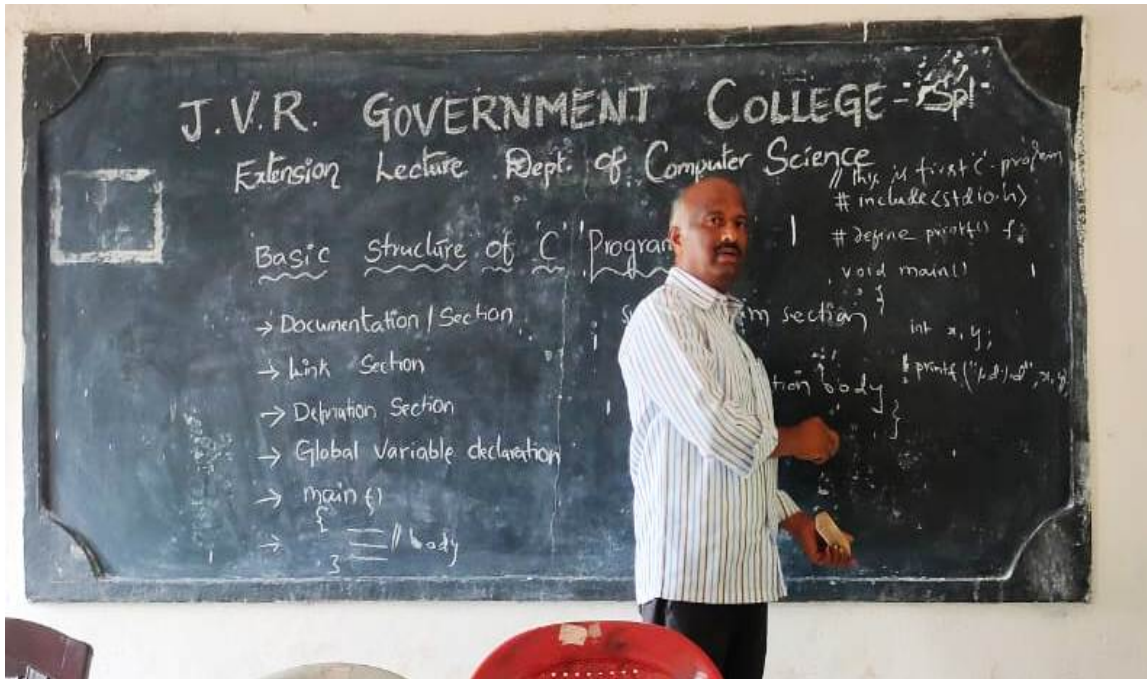 J.V.R. GOVERNMENT COLLEGE - Spl
Extension Lecture Dept. of Computer Science
Basic Structure of 'C' Program
→ Documentation / Section
→ Link Section
→ Defination Section
→ Global Variable declaration
→ main ()
{
→ // body
}
m section
tion body
}
// This is first 'C' program
# include <stdio.h>
# define printf() f;
void main()
{
int x, y;
printf("%d%d", x, y)
}